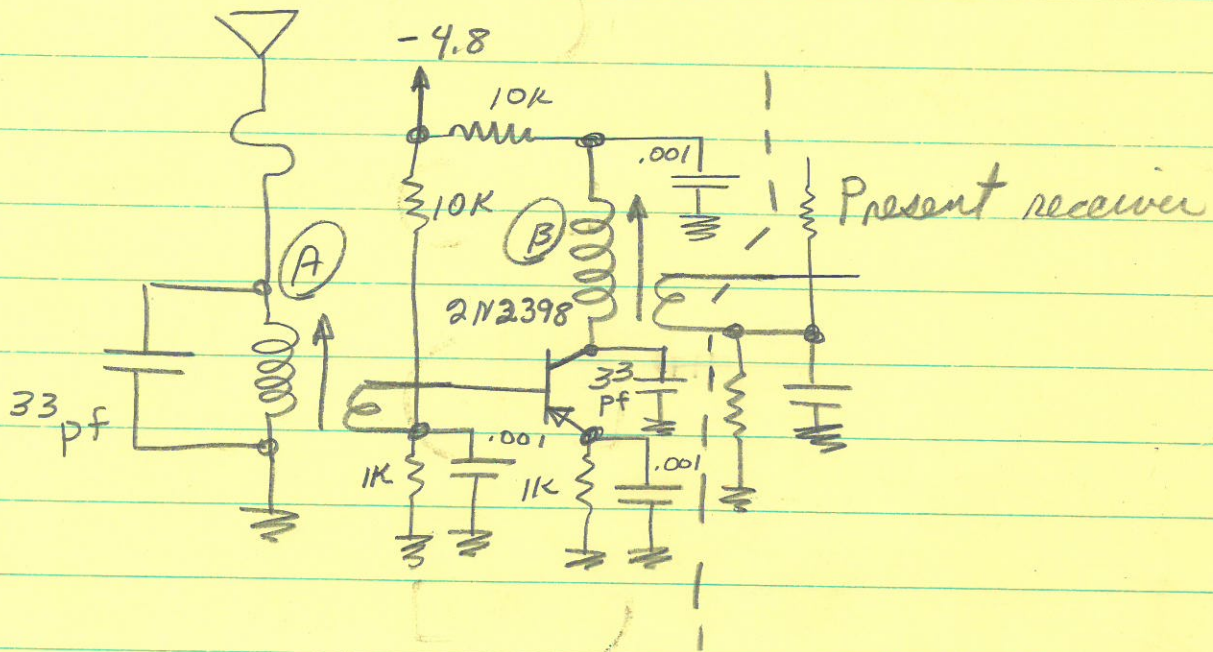 -4.8
10K
.001
10K
Present receiver
A
B
2N2398
33
pf
33
pf
.001
.001
1K
1K